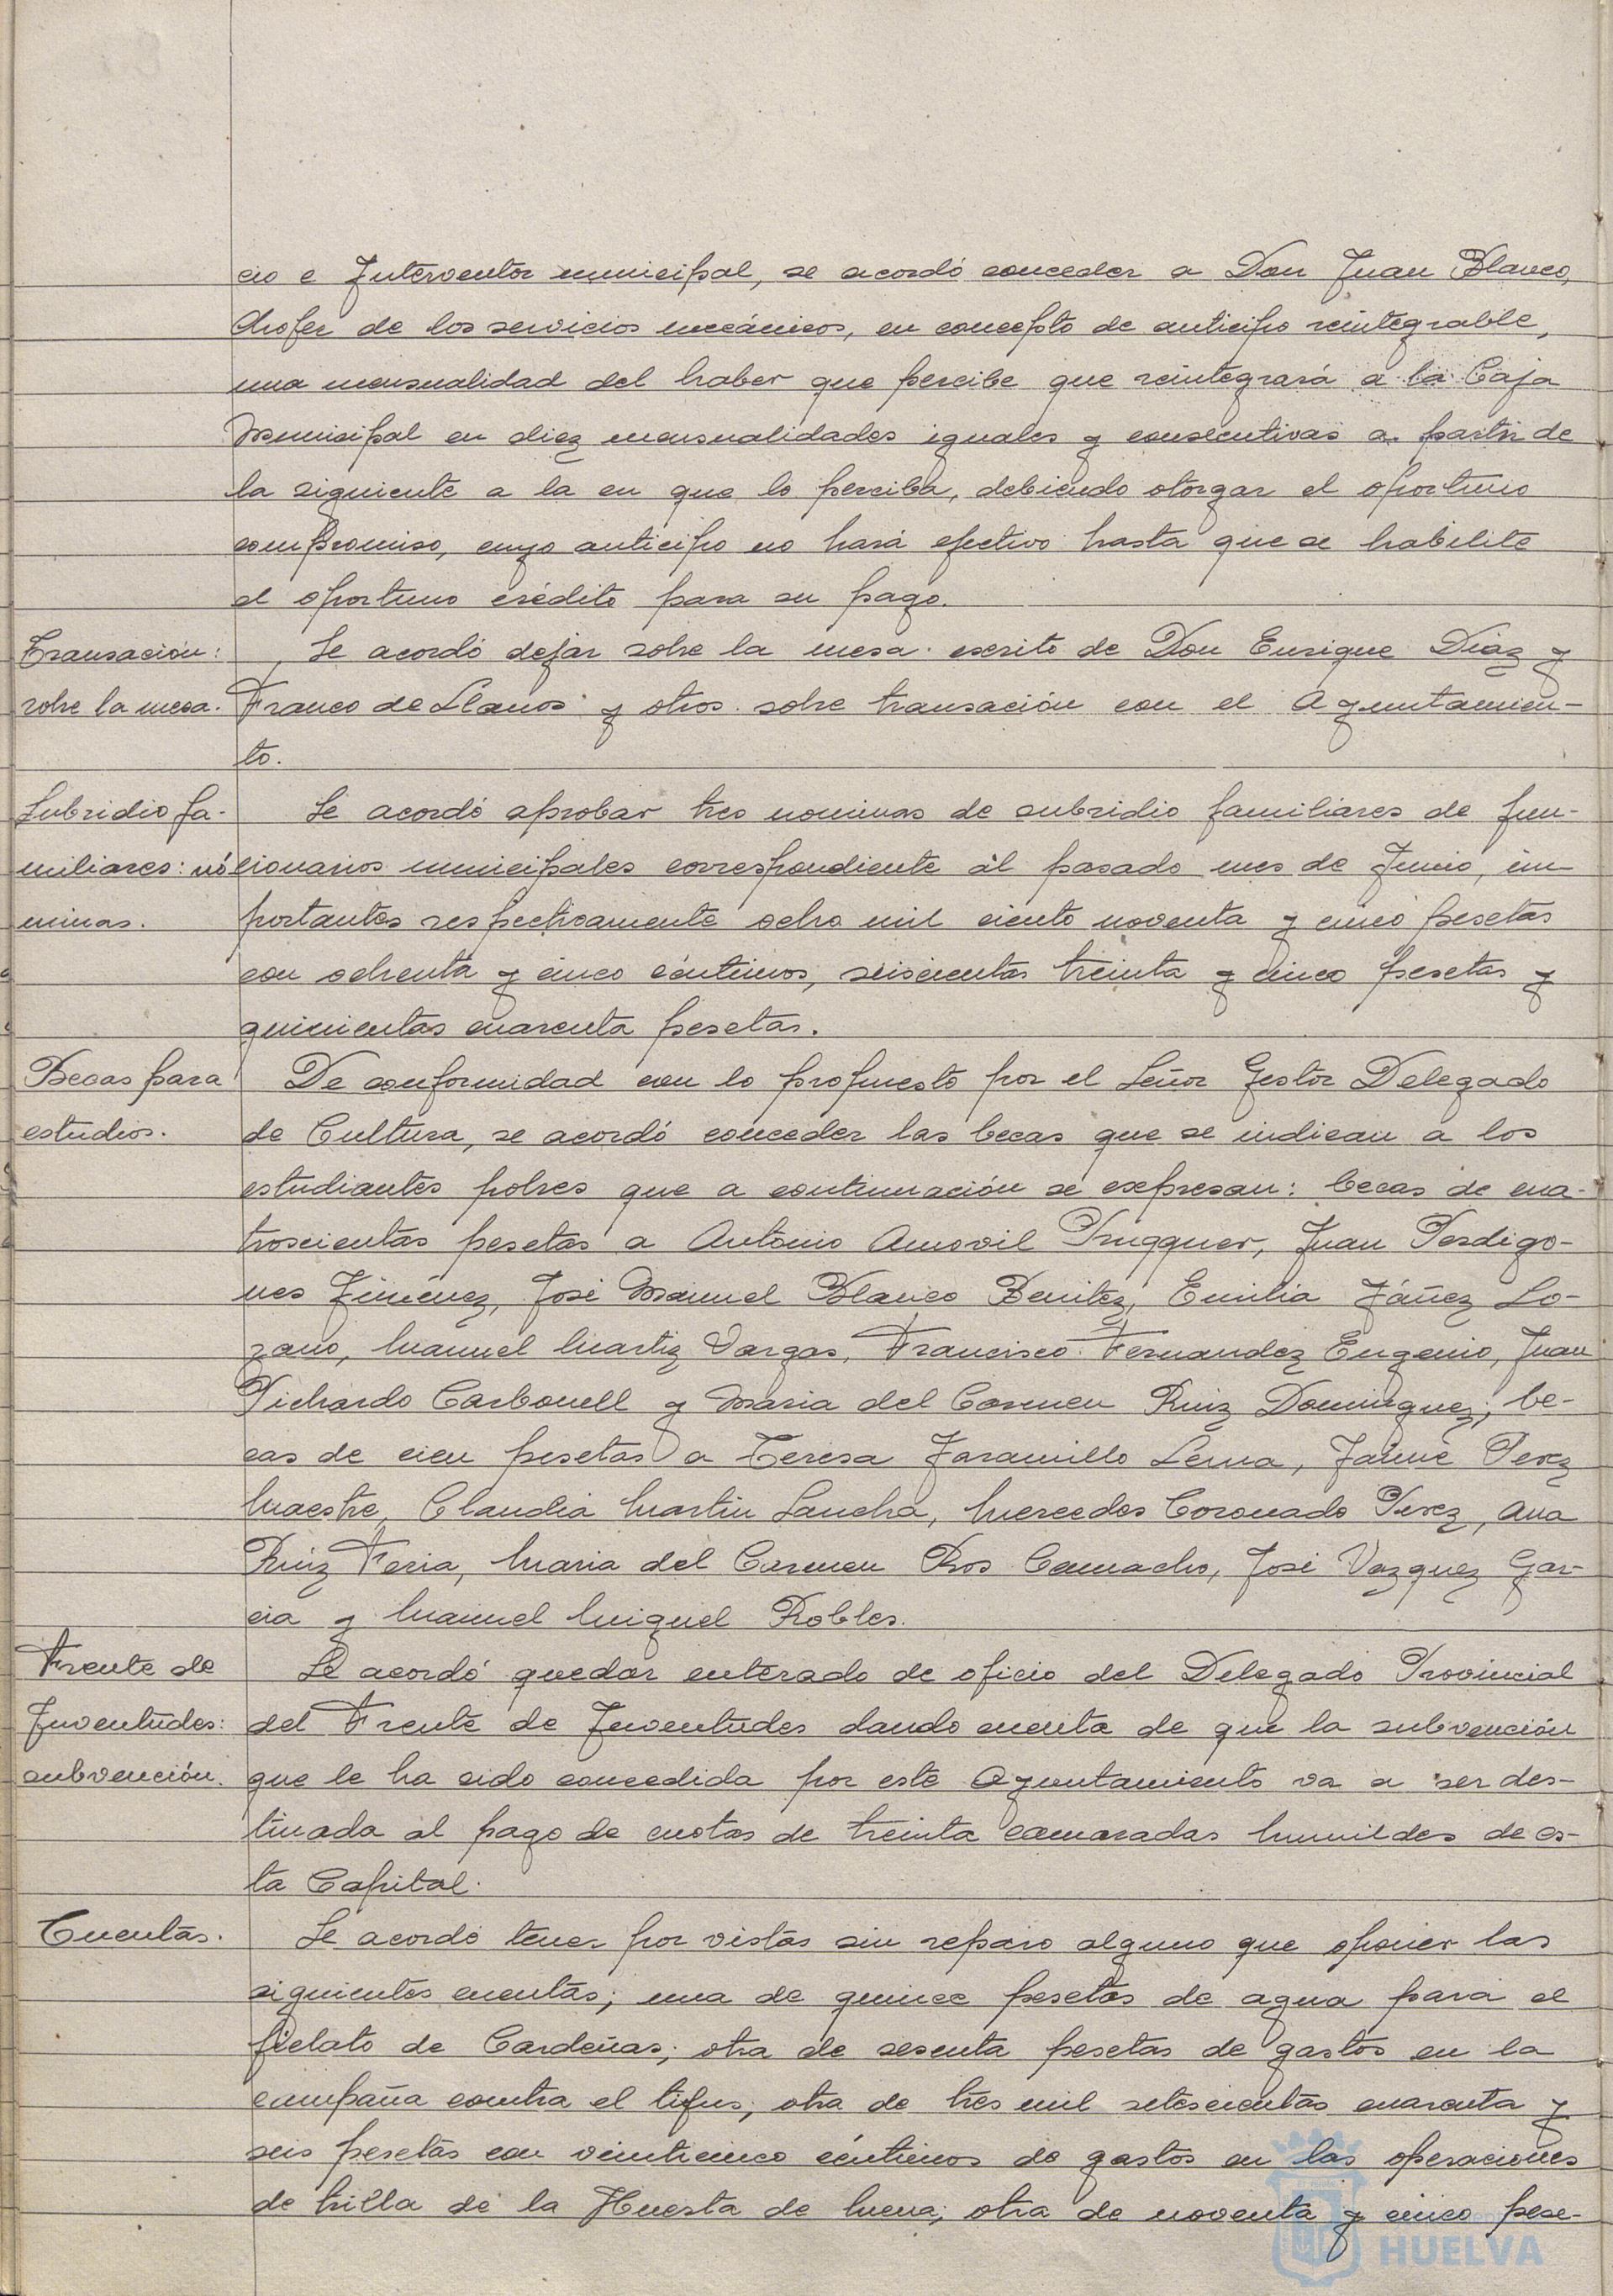 cio e Interventor municipal, se acordó conceder a Don Juan Blanco,
Chofer de los servicios mecánicos, en concepto de anticipo reintegrable,
una mensualidad del haber que percibe que reintegrará a la Caja
Municipal en diez mensualidades iguales y consecutivas a partir de
la siguiente a la en que lo perciba, debiendo otorgar el oportuno
compromiso, cuyo anticipo no hará efectivo hasta que se habilite
el oportuno crédito para su pago.
Transación:
sobre la mesa.
Se acordó dejar sobre la mesa escrito de Don Enrique Diaz y
Franco de Llanos y otros sobre transación con el Ayuntamien-
to.
Subridio fa-
miliares: nó
minas.
Se acordó aprobar tres nominas de subridio familiares de fun-
cionarios municipales correspondiente al pasado mes de Junio, im-
portantes respectivamente ocho mil ciento noventa y cinco pesetas
con ochenta y cinco céntimos, seiscientas treinta y cinco pesetas y
quinientas cuarenta pesetas.
Becas para
estudios.
De conformidad con lo propuesto por el Señor Gestor Delegado
de Cultura, se acordó conceder las becas que se indican a los
estudiantes pobres que a continuación se expresan: becas de cua-
troscientas pesetas a Antonio Amovil Trugquer, Juan Perdigo-
nes Jiménez, José Manuel Blanco Benitez, Emilia Jáñez Lo-
zano, Manuel Martiz Vargas, Francisco Fernandez Eugenio, Juan
Pichardo Carbonell y Maria del Carmen Ruiz Dominguez; be-
cas de cien pesetas a Teresa Jaramillo Lema, Jaime Perez
Maestre, Claudia Martin Sancha, Mercedes Coronado Perez, Ana
Ruiz Feria, Maria del Carmen Ros Camacho, José Vazquez Gar-
cia y Manuel Miguel Robles.
Frente de
Juventudes:
subvención.
Se acordó quedar enterado de oficio del Delegado Provincial
del Frente de Juventudes dando cuenta de que la subvención
que le ha sido concedida por este Ayuntamiento va a ser des-
tinada al pago de cuotas de treinta camaradas humildes de es-
ta Capital.
Cuentas.
Se acordó tener por vistas sin reparo alguno que oponer las
siguientes cuentas; una de quince pesetas de agua para el
fielato de Cardeñas; otra de sesenta pesetas de gastos en la
campaña contra el tifus; otra de tres mil setescientas cuarenta y
seis pesetas con veinticinco céntimos de gastos en las operaciones
de trilla de la Huerta de Mena; otra de noventa y cinco pese-
HUELVA